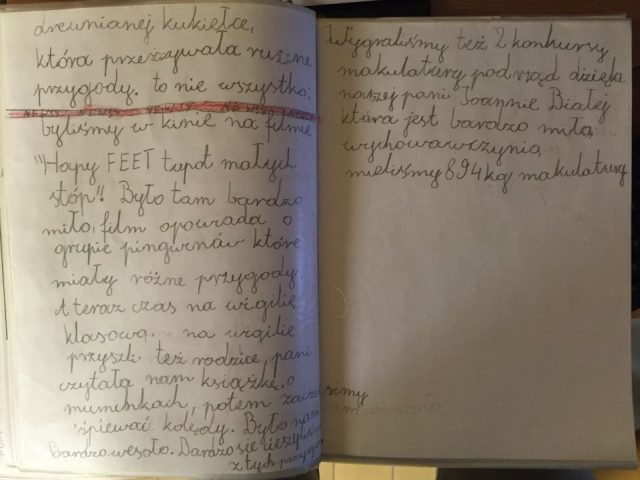 drewnianej kukiełce,
która przeżywała rużne
przygody. to nie wszystko:
byliśmy w kinie na filmie
"Hapy FEET tupot małych
stóp". Było tam bardzo
miło, film opowiada o
grupie pingwinów które
miały różne przygody.
A teraz czas na wigilie
klasową. na wigilie
przyszli też rodzice, pani
czytała nam książkę o
muminkach, potem zaczeliśmy
śpiewać kolędy. Było nam
Bardzo wesoło. Bardzo się cieszyliśmy
z tych przygód
Wygraliśmy też 2 konkursy
makulatury pod rząd dzięki
naszej pani Joannie Białej
która jest bardzo miłą
wychowawczynią
mieliśmy 894kg makulatury